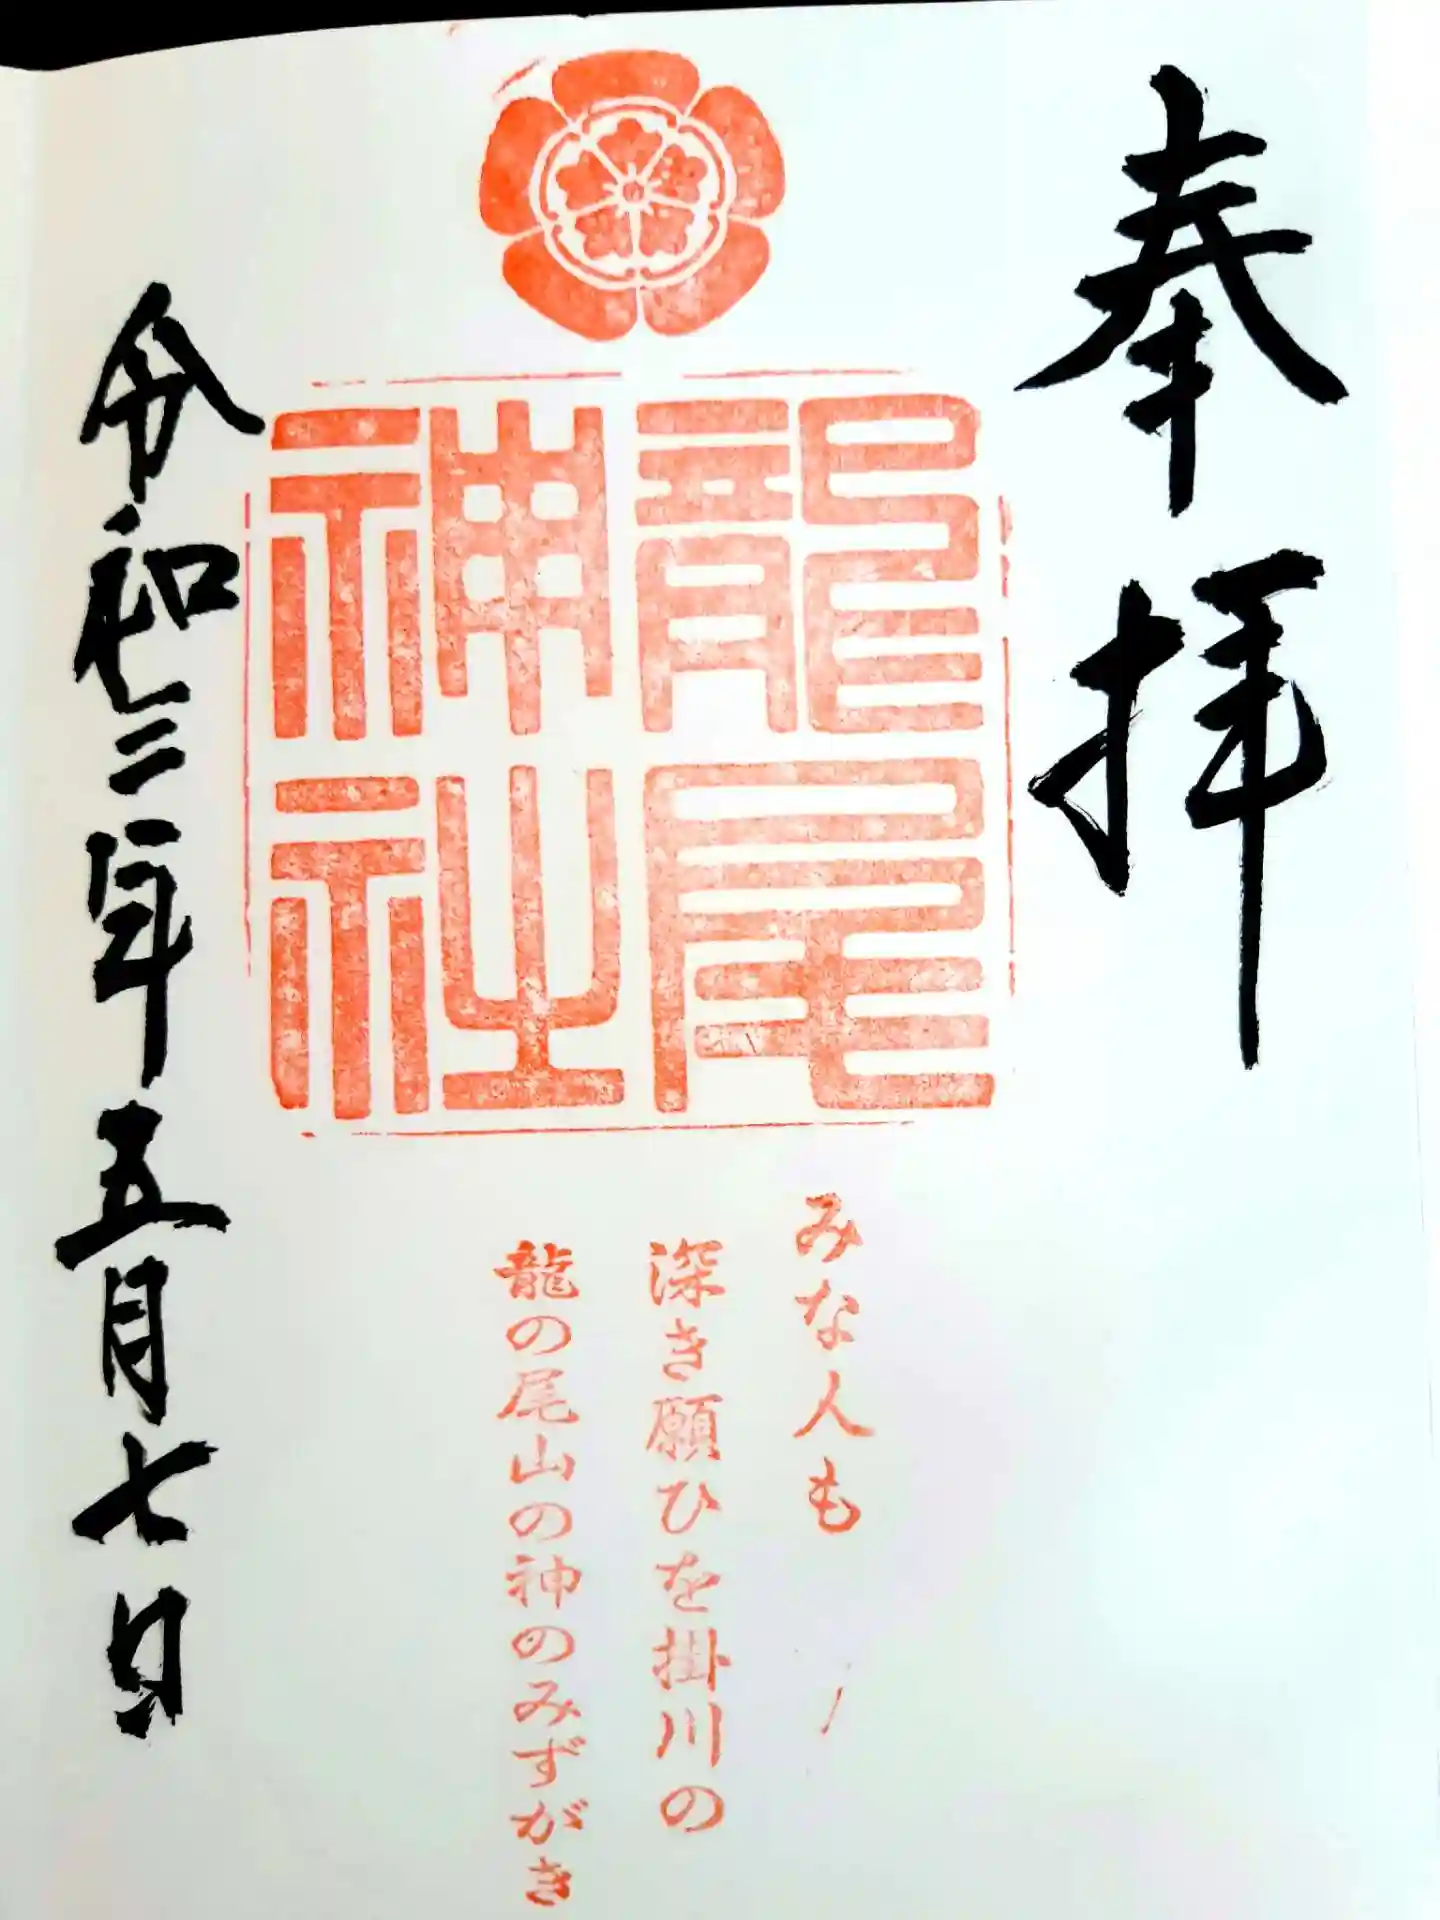 奉拝
龍尾
神社
みな人も
深き願ひを掛川の
龍の尾山の神のみずがき
令和三年五月七日